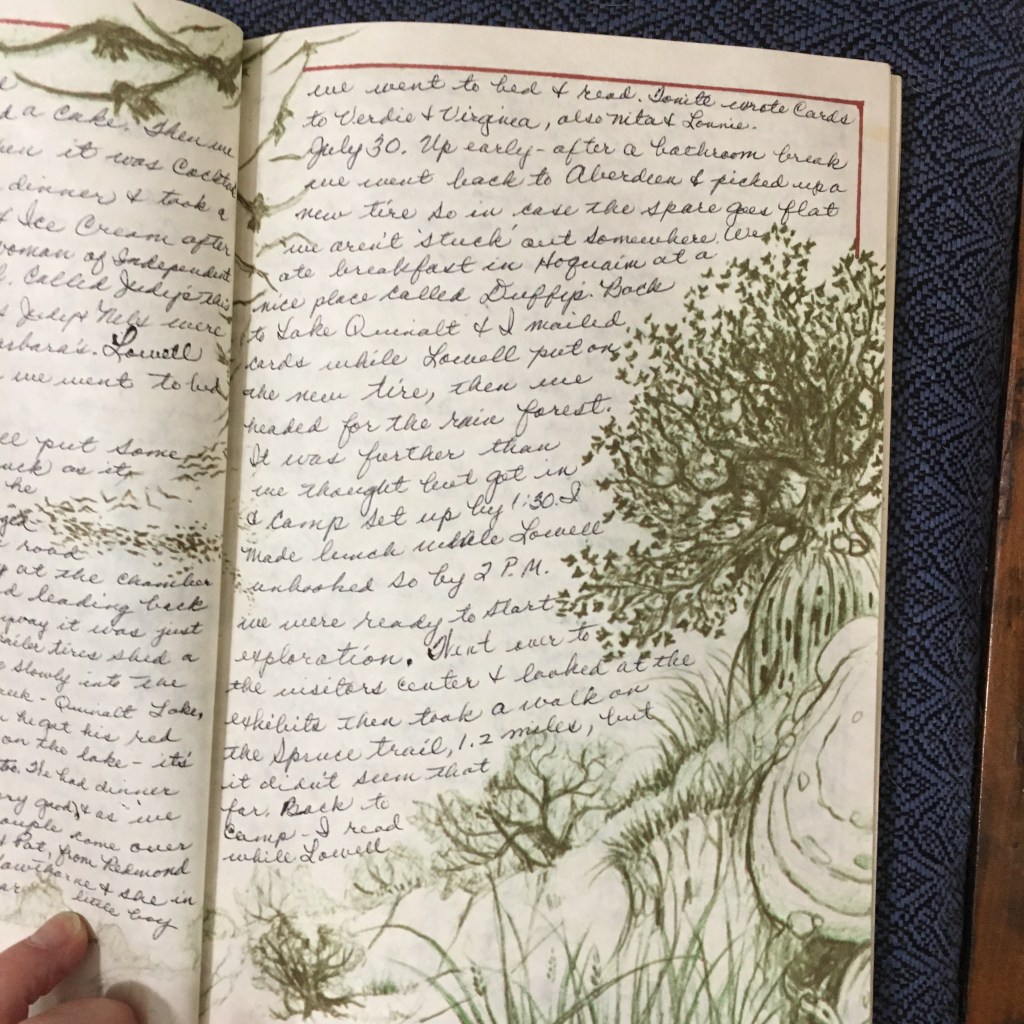 a cake. Then we
when it was Cocktail
dinner & took a
& Ice Cream after
woman of Independent
Called Judy & this
Judy & Nels were
Barbara's. Lowell
we went to bed
put some
as it
he
road
at the chamber
leading back
way it was just
trailer tires shed a
slowly into the
Quinalt Lake,
he got his red
on the lake - it's
too. We had dinner
very good & as we
couple came over
& Pat, from Redmond
Hawthorne & she in
little boy
we went to bed & read. Tonite wrote Cards
to Verdie & Virginia, also Nita & Lonnie.
July 30. Up early - after a bathroom break
we went back to Aberdeen & picked up a
new tire so in case the spare goes flat
we aren't 'stuck' out somewhere. We
ate breakfast in Hoquaim at a
nice place called Duffy's. Back
to Lake Quinalt & I mailed
cards while Lowell put on
the new tire, then we
headed for the rain forest.
It was further than
we thought but got in
& camp set up by 1:30. I
made lunch while Lowell
unhooked so by 2 P.M.
we were ready to start
exploration. Went over to
the visitors center & looked at the
exhibits then took a walk on
the Spruce trail, 1.2 miles, but
it didn't seem that
far. Back to
camp - I read
while Lowell